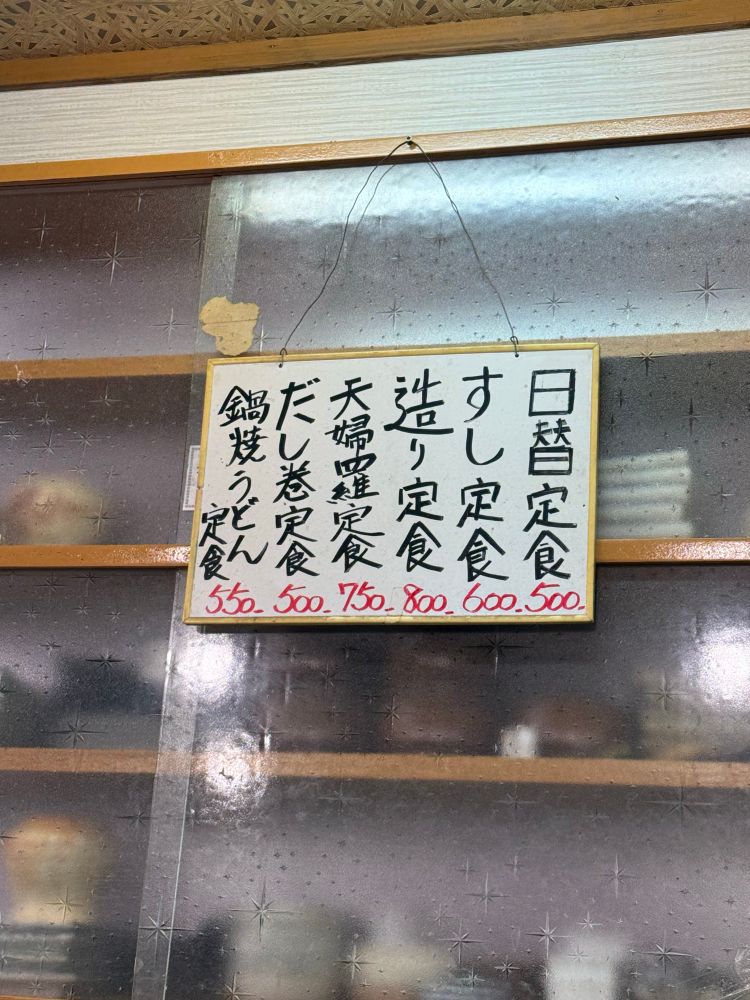 日替定食 500.-
すし定食 600.-
造り定食 800.-
天婦羅定食 750.-
だし巻定食 500.-
鍋焼うどん定食 550.-